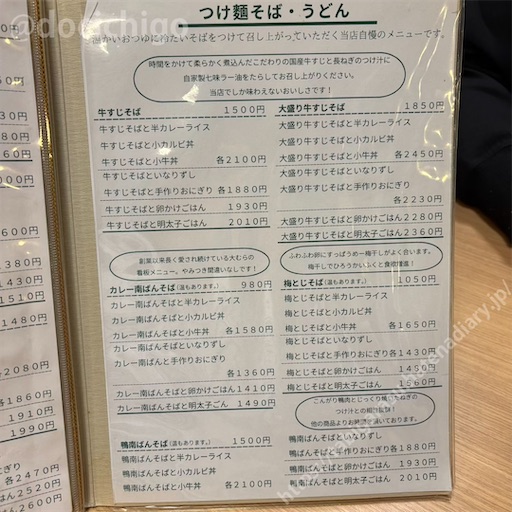 @doutchigo
つけ麺そば・うどん
温かいおつゆに冷たいそばをつけて召し上がっていただく当店自慢のメニューです。
時間をかけて柔らかく煮込んだこだわりの国産牛すじと長ねぎのつけ汁に
自家製七味ラー油をたらしてお召し上がりください。
当店でしか味わえないおいしさです！
牛すじそば 1500円
牛すじそばと半カレーライス
牛すじそばと小カルビ丼
牛すじそばと小牛丼 各2100円
牛すじそばといなりずし
牛すじそばと手作りおにぎり 各1880円
牛すじそばと卵かけごはん 1930円
牛すじそばと明太子ごはん 2010円
創業以来長く愛され続けている大むらの
看板メニュー。やみつき間違いなしです！
カレー南ばんそば(温もあります。) 980円
カレー南ばんそばと半カレーライス
カレー南ばんそばと小カルビ丼
カレー南ばんそばと小牛丼 各1580円
カレー南ばんそばといなりずし
カレー南ばんと手作りおにぎり
各1360円
カレー南ばんそばと卵かけごはん 1410円
カレー南ばんそばと明太子ごん 1490円
鴨南ばんそば(温もあります。) 1500円
鴨南ばんそばと半カレーライス
鴨南ばんそばと小カルビ丼
鴨南ばんそばと小牛丼 各2100円
大盛り牛すじそば 1850円
大盛り牛すじそばと半カレーライス
大盛り牛すじそばと小カルビ丼
大盛り牛すじそばと小牛丼 各2450円
大盛り牛すじそばといなりずし
大盛り牛すじそばと手作りおにぎり
各2230円
大盛り牛すじそばと卵かけごはん 2280円
大盛り牛すじそばと明太子ごはん 2360円
ふわふわ卵にすっぱうめー梅干しがよく合います。
梅干しでひろうかいふくと食欲増進！
梅とじそば(温もあります。) 1050円
梅とじそばと半カレーライス
梅とじそばと小カルビ丼
梅とじそばと小牛丼 各1650円
梅とじそばといなりずし
梅とじそばと手作りおにぎり 各1430円
梅とじそばと卵かけごはん 1450円
梅とじそばと明太子ごはん 1560円
こんがり鴨肉とじっくり焼いた長ねぎの
鴨南ばんそばといなりずし
鴨南ばんそばと手作りおにぎり 各1880円
鴨南ばんそばと卵かけごはん 1930円
鴨南ばんそばと明太子ごはん 2010円